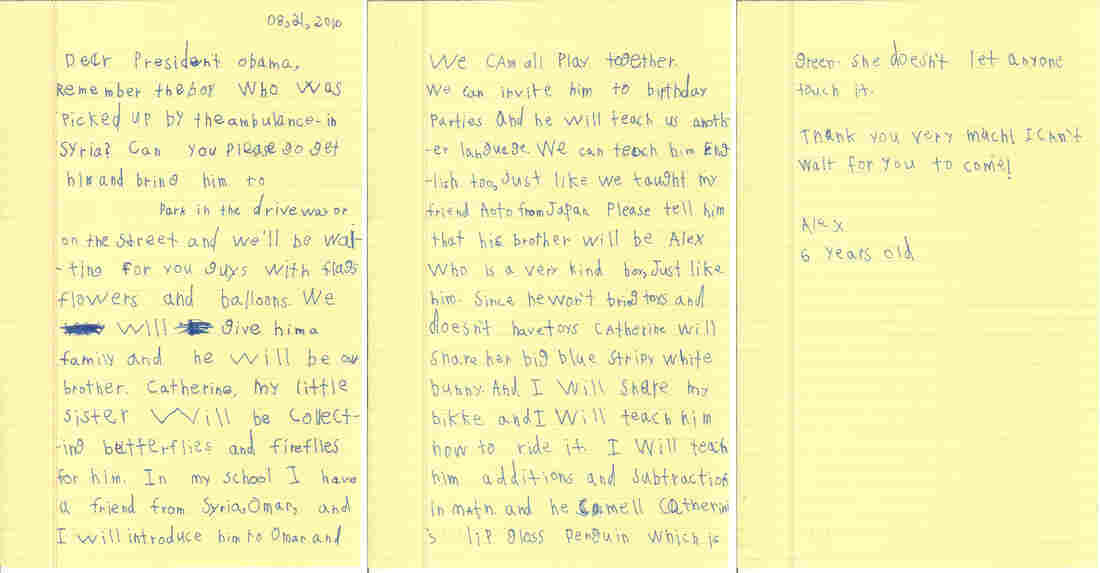 08,21,2016
Dear President obama,
Remember the boy who was
picked up by the ambulance-in
Syria? Can you please go get
him and bring him to
Park in the driveway or
on the street and we'll be wai-
-ting for you guys with flags
flowers and balloons. We
will give him a
family and he will be our
brother. Catherine, my little
sister will be collect-
-ing butterflies and fireflies
for him. In my school I have
a friend from Syria, Omar, and
I will introduce him to Omar and
We can all play together.
We can invite him to birthday
parties and he will teach us anoth-
-er language. We can teach him Eng
-lish too, Just like we taught my
friend Aoto from Japan Please tell him
that his brother will be Alex
Who is a very kind boy, Just like
him. Since he won't bring toys and
doesn't have toys Catherine will
share her big blue stripy white
bunny. And I will share my
bikke and I will teach him
how to ride it. I will teach
him additions and subtractions
in math. and he smell Catherine
's lip gloss penguin which is
green. she doesn't let anyone
touch it.
Thank you very much! I can't
wait for you to come!
Alex
6 years old